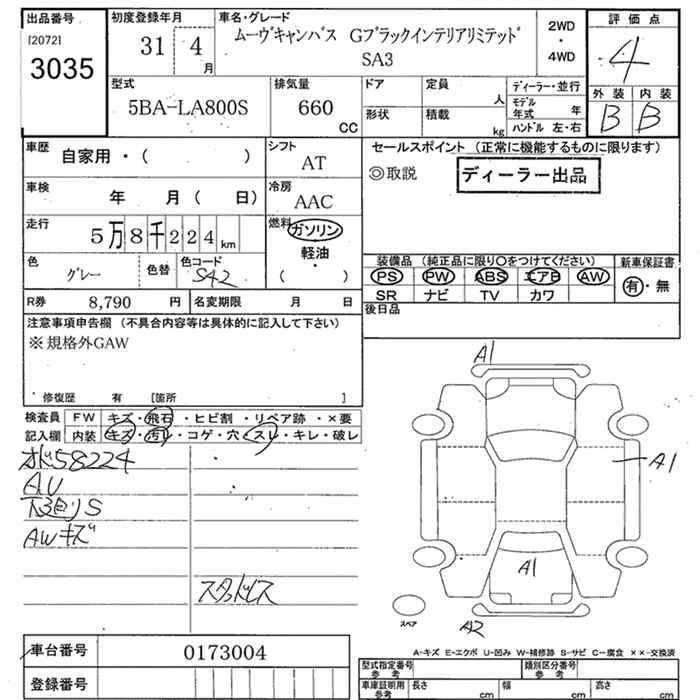 出品番号
[2072]
3035
初度登録年月
31 4
月
車名・グレード
ムーヴキャンバス Gブラックインテリアリミテッド
SA3
2WD
・
4WD
評価点
4
外装 内装
B B
型式
5BA-LA800S
排気量
660
CC
ドア
形状
定員
人
積載
kg
ディーラー・並行
モデル
年式 年
ハンドル 左・右
車歴
自家用・( )
シフト
AT
セールスポイント (正常に機能するものに限ります)
◎取説
ディーラー出品
車検
年 月( 日)
冷房
AAC
走行
5万8千224km
燃料
ガソリン
軽油
・
( )
色
グレー
色替
色コード
SA2
装備品 (純正品に限り○をつけてください)
PS PW ABS エアB AW
SR ナビ TV カワ
新車保証書
有・無
R券 8,790 円
名変期限 月 日
後日品
注意事項申告欄 (不具合内容等は具体的に記入して下さい)
※規格外GAW
修復歴 有 [箇所 ]
検査員
記入欄
FW キズ・飛石・ヒビ割・リペア跡・×要
内装 キズ・汚レ・コゲ・穴・スレ・キレ・破レ
58224
AU
S
AWキズ
スタッドレス
A1
A1
A1
A2
スペア
A-キズ E-エクボ U-凹み W-補修跡 S-サビ C-腐食 ××-交換済
車台番号 0173004
登録番号
型式指定番号
参考
類別区分番号
参考
車庫証明用
参考
長さ cm
幅 cm
高さ cm